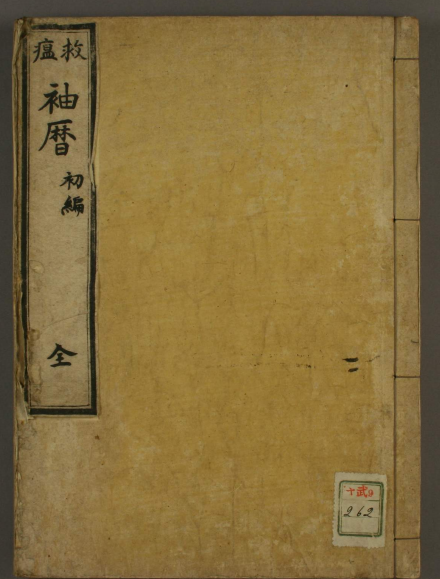 救瘟
袖暦
初編
全
二
十武9
262